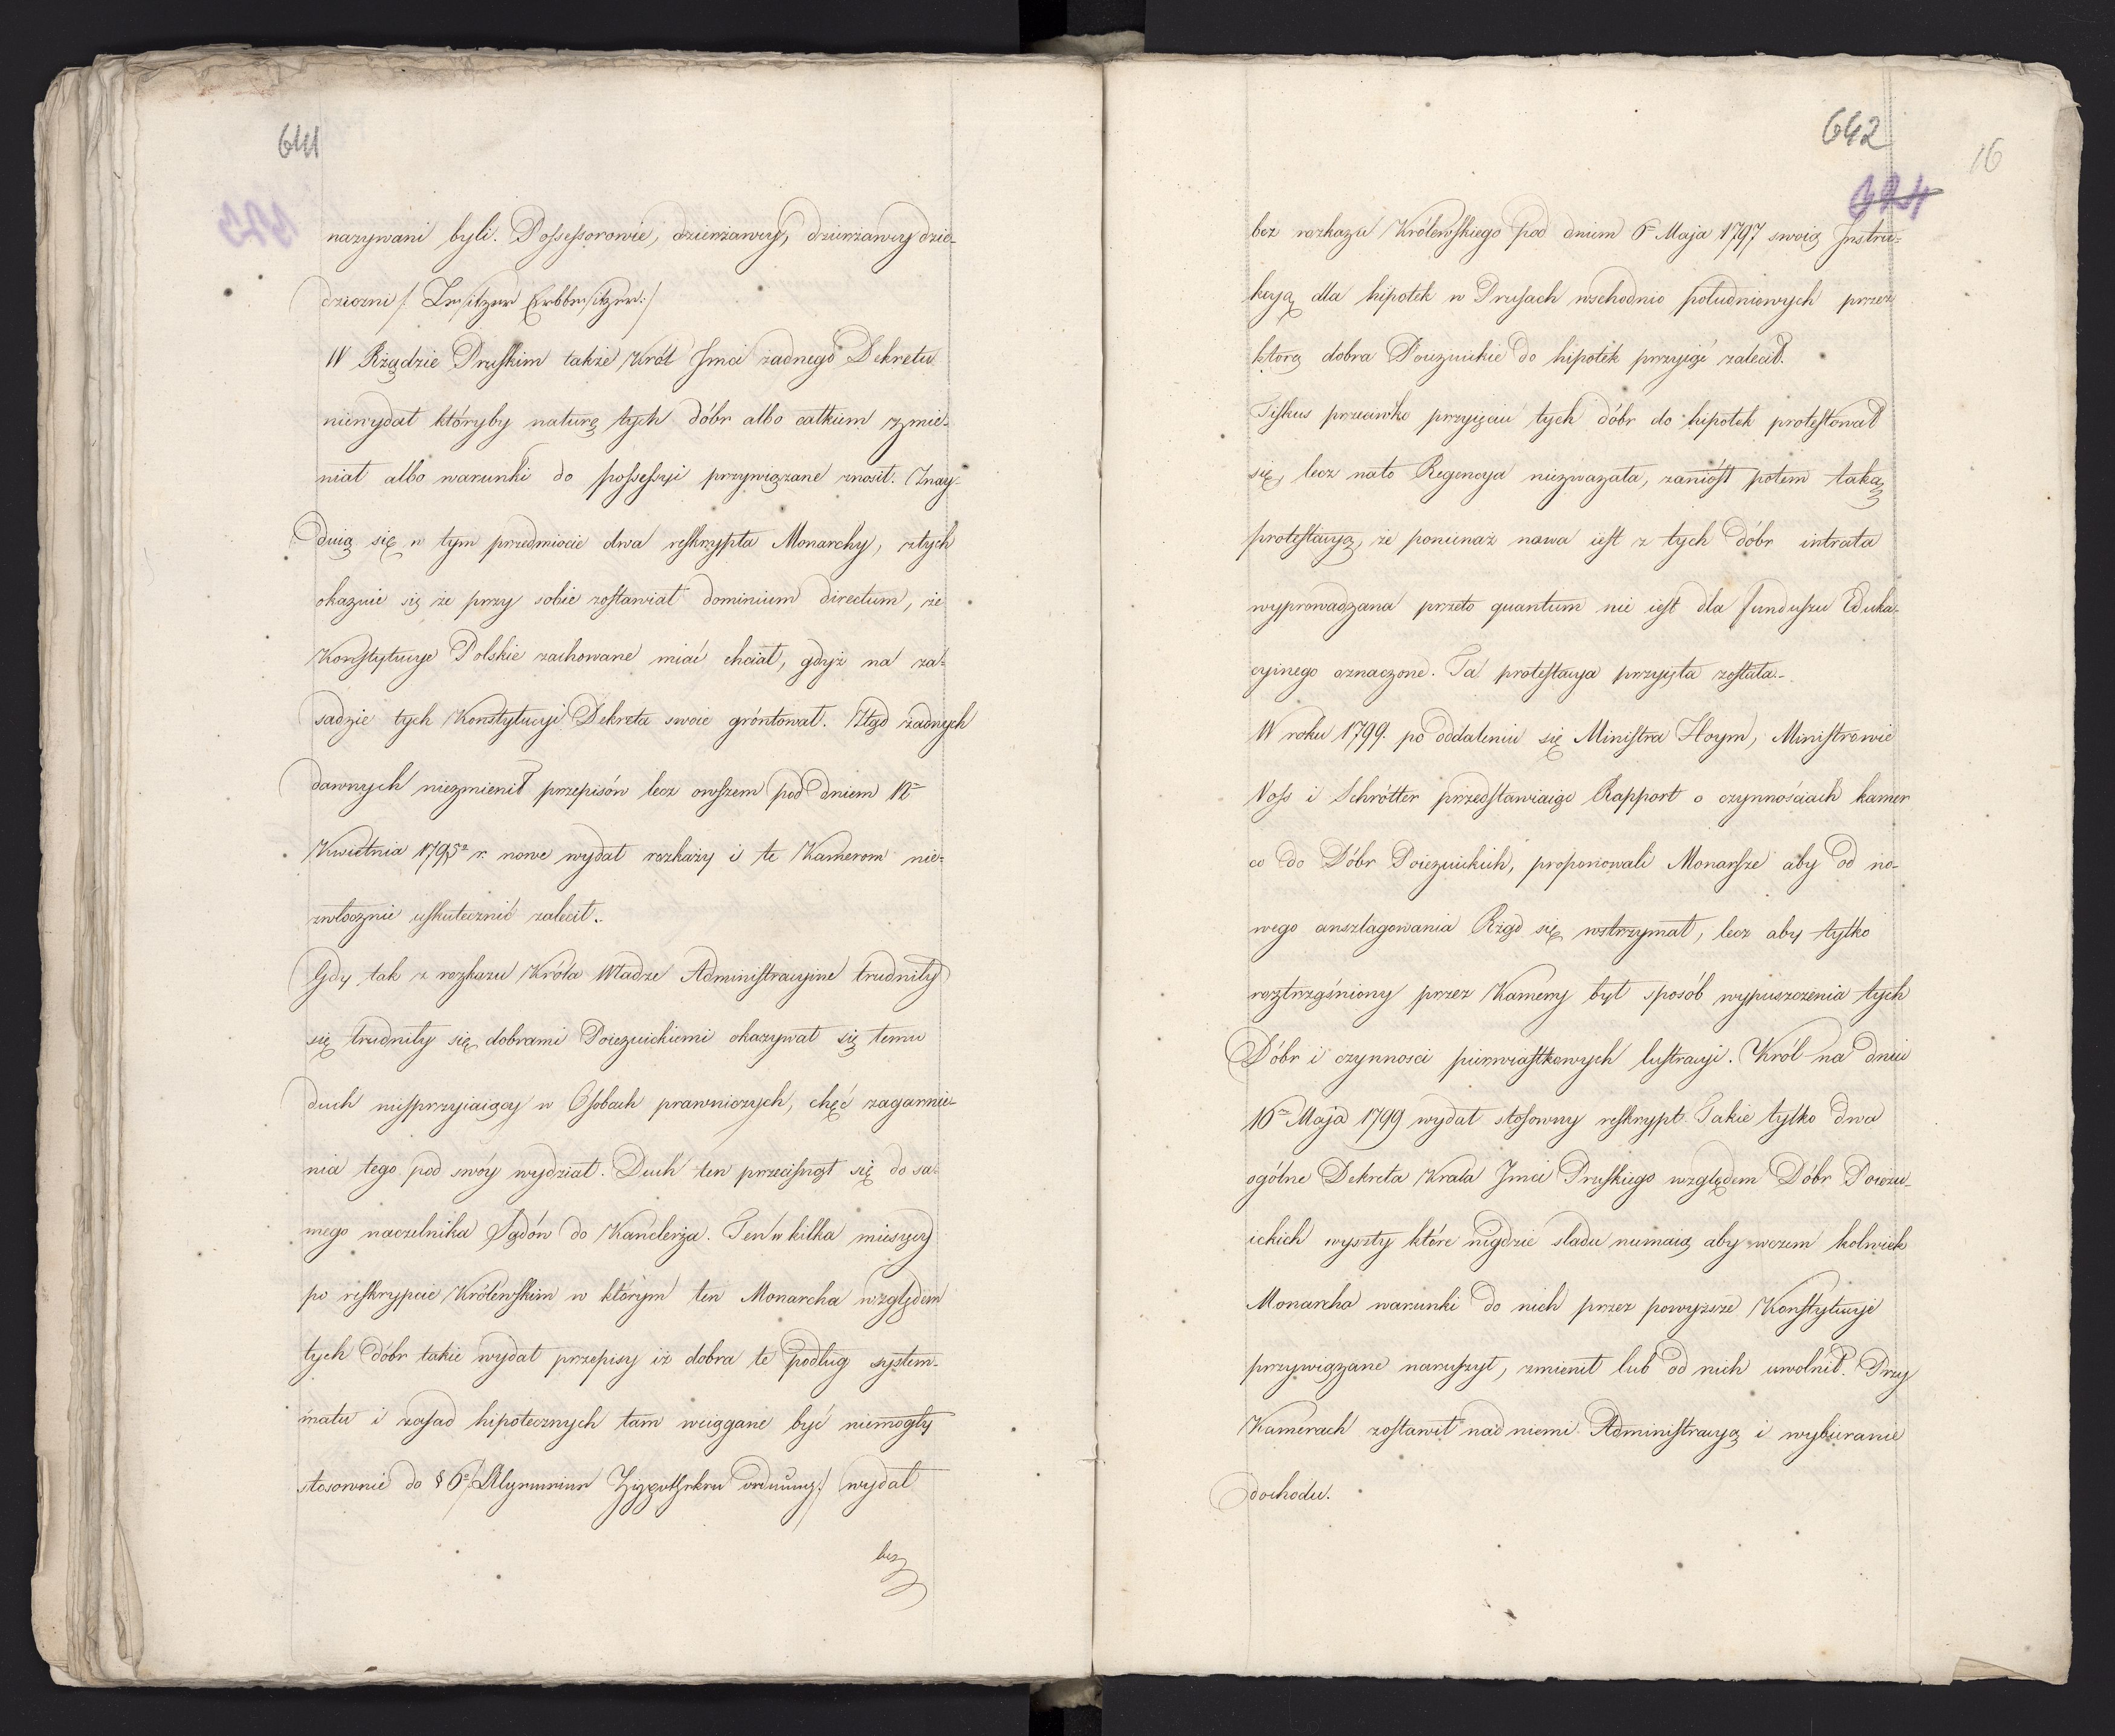 641
nazywani byli. Possessorowie, dzierżawcy, dzierżawcy dzie-
dziczni /: Besitzer Erbbesitzer :/
W Rządzie Pruskim także Król Jmci żadnego Dekretu
niewydał któryby naturę tych dóbr albo całkiem zmie-
niał albo warunki do possessyi przywiązane znosił. Znay-
duią się w tym przedmiocie dwa reskrypta Monarchy, z tych
okazuie się że przy sobie zostawiał dominium directum, że
Konstytucye Polskie zachowane mieć chciał, gdyż na za-
sadzie tych Konstytucyi Dekreta swoie gróntował. Ztąd żadnych
dawnych niezmienił przepisów lecz owszem pod dniem 12
Kwietnia 1795 r. nowe wydał rozkazy i te Kamerom nie-
zwłocznie uskutecznić zalecił.
Gdy tak z rozkazu Króla Władze Administracyine trudniły
się trudniły się dobrami Poiezuickiemi okazywał się temu
duch niesprzyiaiący w Osobach prawniczych, chęć zagarnie-
nia tego pod swóy wydział. Duch ten przecisnął się do sa-
mego naczelnika Sądów do Kanclerza. Ten w kilka miesięcy
po reskrypcie Królewskim w którym ten Monarcha względem
tych dóbr takie wydał przepisy iż dobra te podług system-
matu i zasad hipotecznych tam wciągane być niemogły
stosownie do § 6 /: Allgemeiner Hypotheken ordnung :/ wydał
bez
642
16
bez rozkazu Królewskiego pod dniem 6 Maja 1797 swoią Instru-
kcyą dla hipotek w Prusach wschodnio południowych przez
którą dobra Poiezuickie do hipotek przyiąć zalecił.
Fiskus przeciwko przyięciu tych dóbr do hipotek protestował
się, lecz nato Regencya niezważała, zaniósł potem taką
protestacyą, że ponieważ nowa iest z tych dóbr intrata
wyprowadzana przeto quantum nie iest dla funduszu Eduka-
cyinego oznaczone. Ta protestacya przyięta została.
W roku 1799. po oddaleniu się Ministra Hoym, Ministrowie
Voss i Schrötter przedstawiaiąc Rapport o czynnościach kamer
co do Dóbr Poiezuickich, proponowali Monarsze aby od no-
wego anszlagowania Rząd się wstrzymał, lecz aby tylko
roztrząśniony przez Kamery był sposób wypuszczenia tych
Dóbr i czynnosci pierwiastkowych lustracyi. Król na dniu
16 Maja 1799 wydał stosowny reskrypt. Takie tylko dwa
ogólne Dekreta Krala Jmci Pruskiego względem Dóbr Poiezu-
ickich wyszły które nigdzie sladu niemaią aby wczem kolwiek
Monarcha warunki do nich przez powyższe Konstytucye
przywiązane naruszył, zmienił lub od nich uwolnił. Przy
Kamerach zostawił nad niemi Administracyą i wybieranie
dochodu.